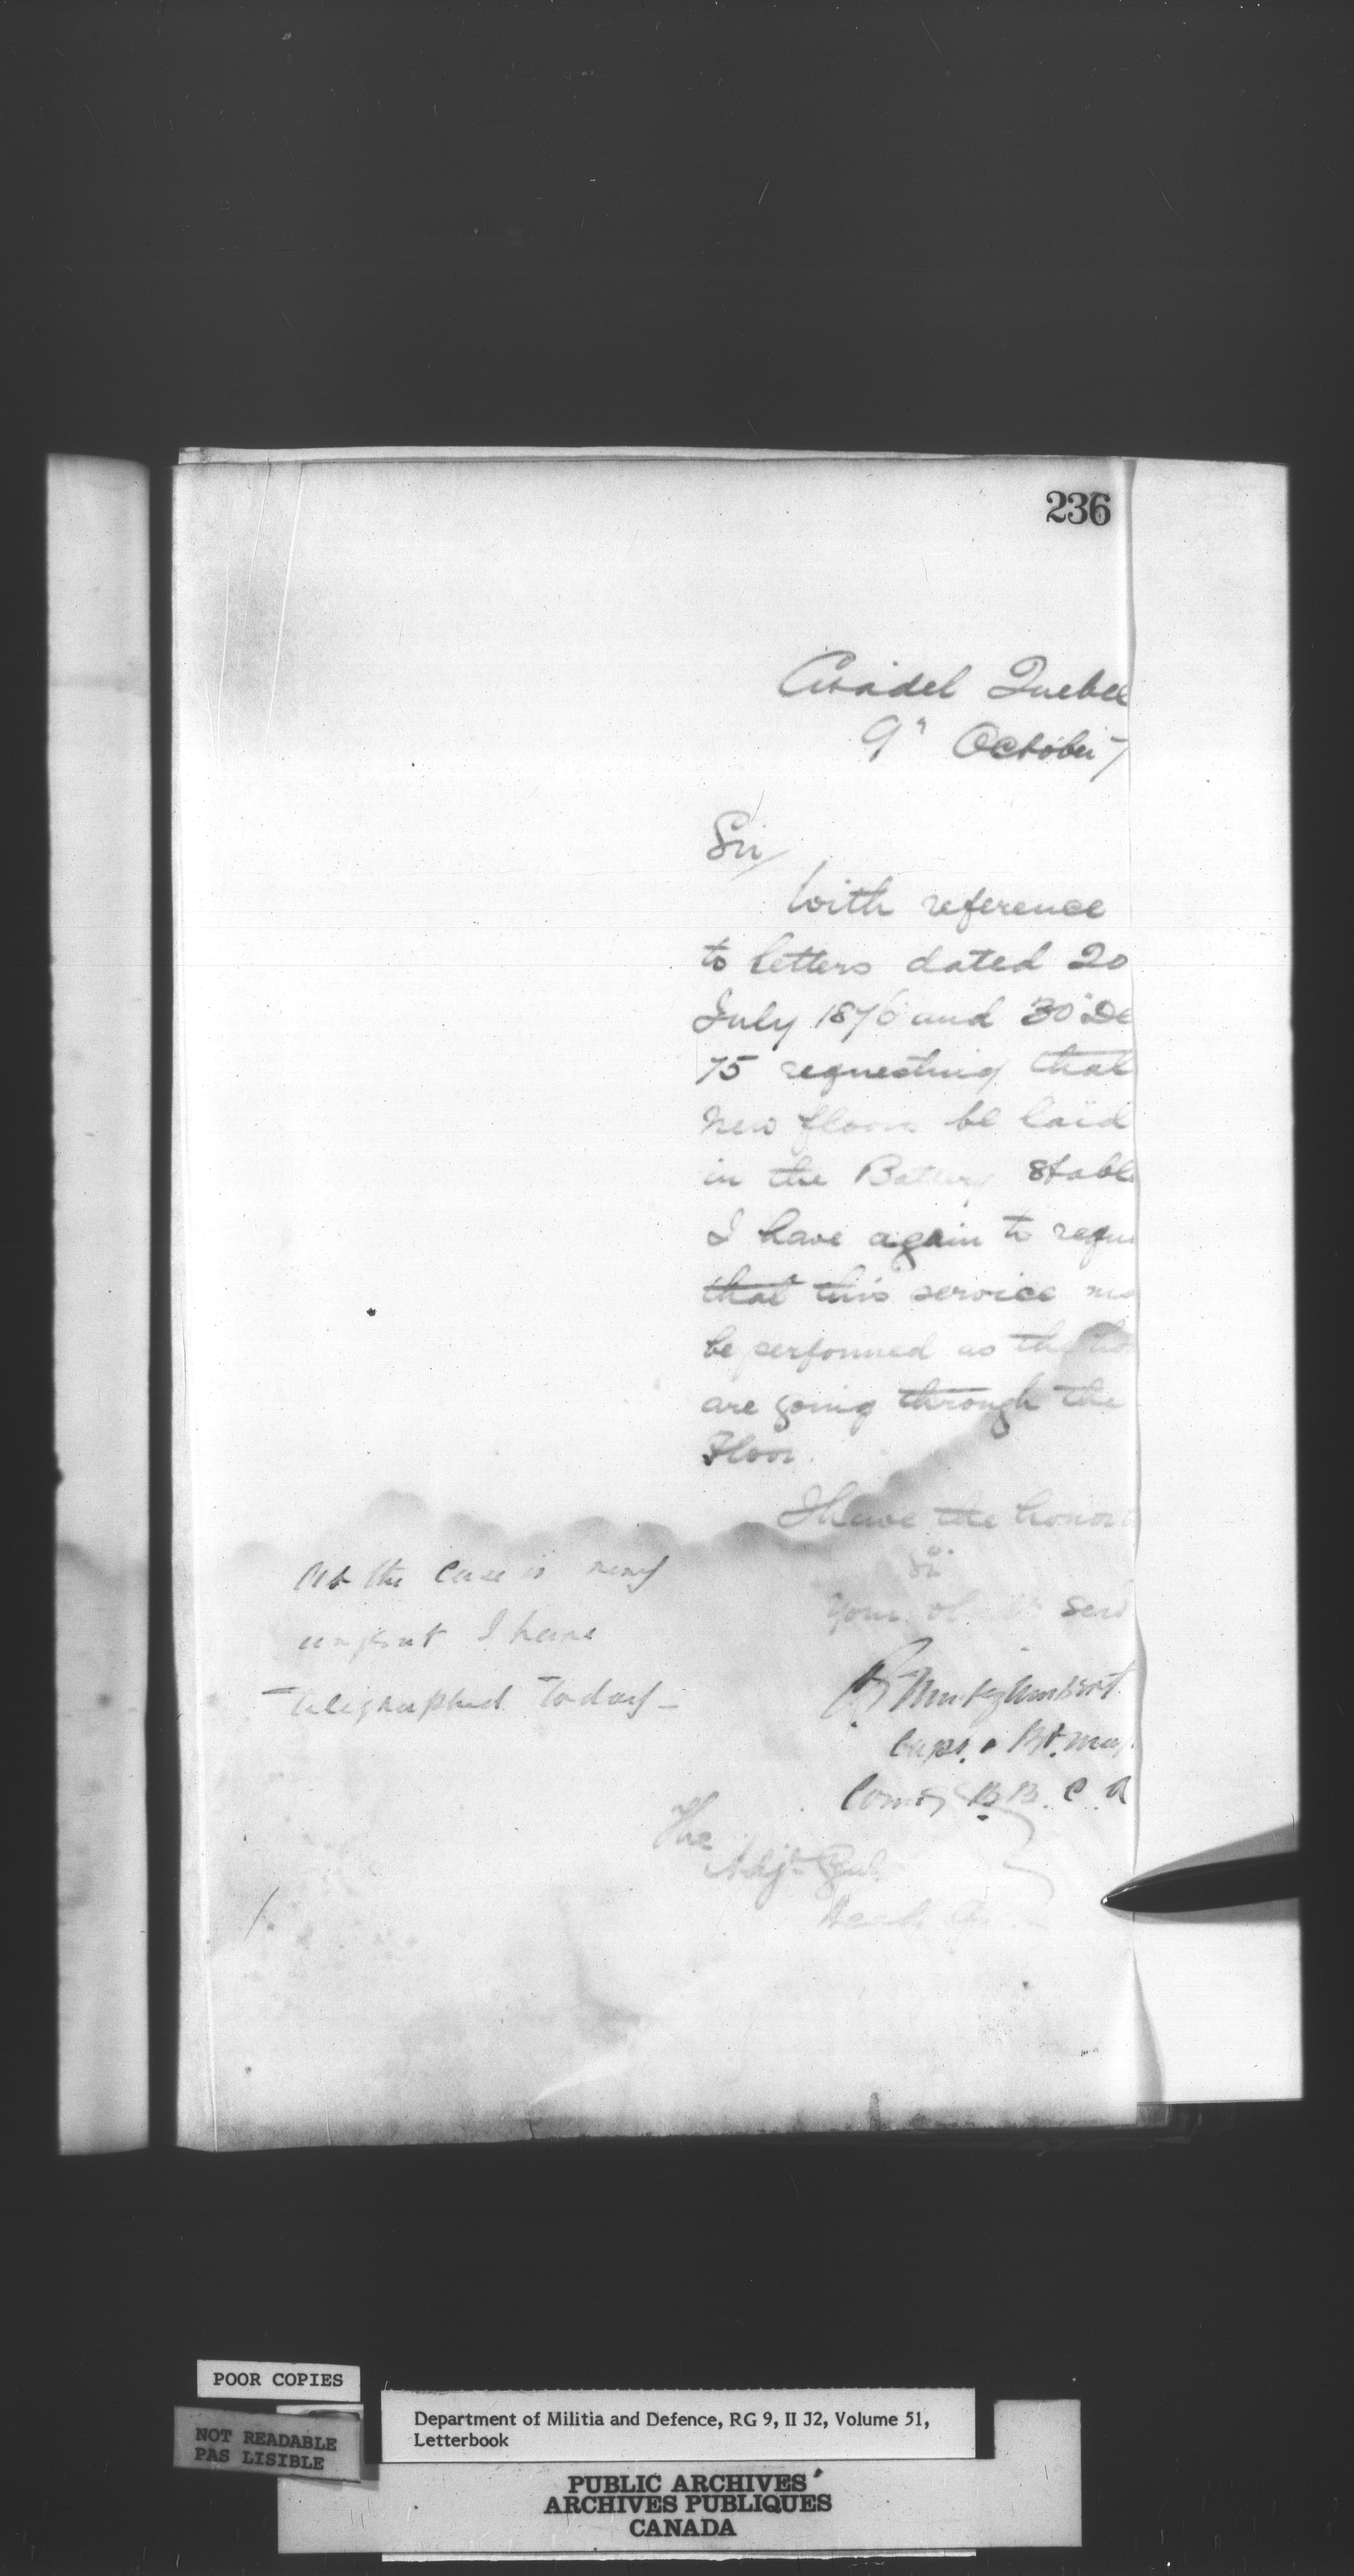 236
Citadel Quebec
9" October 7
Sir/
With reference
to letters dated 20
July 1876 and 30" De
75 requesting that
new floors be laid
in the Battery Stable
I have again to requ
that this service ma
be performed as the ho
are going through the
Floor.
I have the honor t
Sir
Your obdt Serv
Capt. & Bt. Maj.
Comg B B. C. A
As the case is very
urgent I have
telegraphed today —
The
Adjt Genl
Head Q
POOR COPIES
NOT READABLE
PAS LISIBLE
Department of Militia and Defence, RG 9, II J2, Volume 51,
Letterbook
PUBLIC ARCHIVES
ARCHIVES PUBLIQUES
CANADA